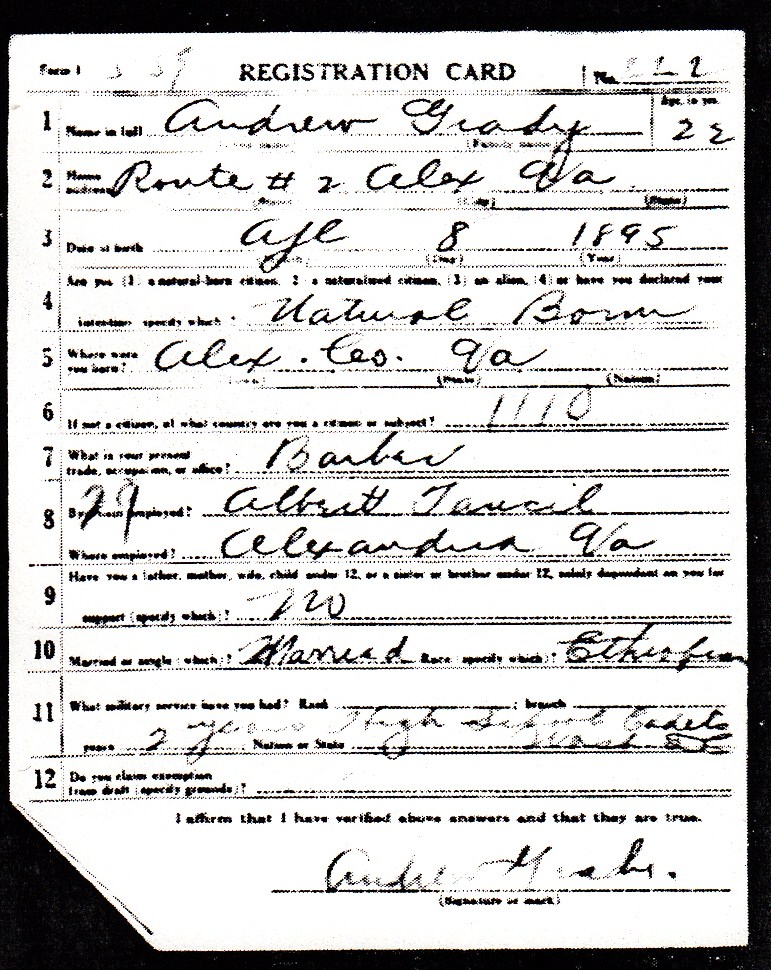 Form 1 REGISTRATION CARD No.
1 Name in full Andrew Grady Age, in yrs. 22
2 Home address Route # 2 Alex Va
3 Date of birth Apl 8 1895
(Day) (Year)
Are you (1) a natural-born citizen, 2 a naturalized citizen, (3) an alien, (4) or have you declared your
4 intention specify which? Natural Born
5 Where were you born? Alex. Co. Va
(State) (Nation)
6 If not a citizen, of what country are you a citizen or subject?
7 What is your present trade, occupation, or office? Barber
8 By whom employed? 29 Albert
Where employed? Alexandria Va
Have you a father, mother, wife, child under 12, or a sister or brother under 12, solely dependent on you for
9 support (specify which)? no
10 Married or single (which)? Married Race (specify which)? Ethiopian
11 What military service have you had? Rank ; branch
years 2 years Nation or State High School Cadets Wash DC
12 Do you claim exemption from draft (specify grounds)?
I affirm that I have verified above answers and that they are true.
Andrew
(Signature or mark)